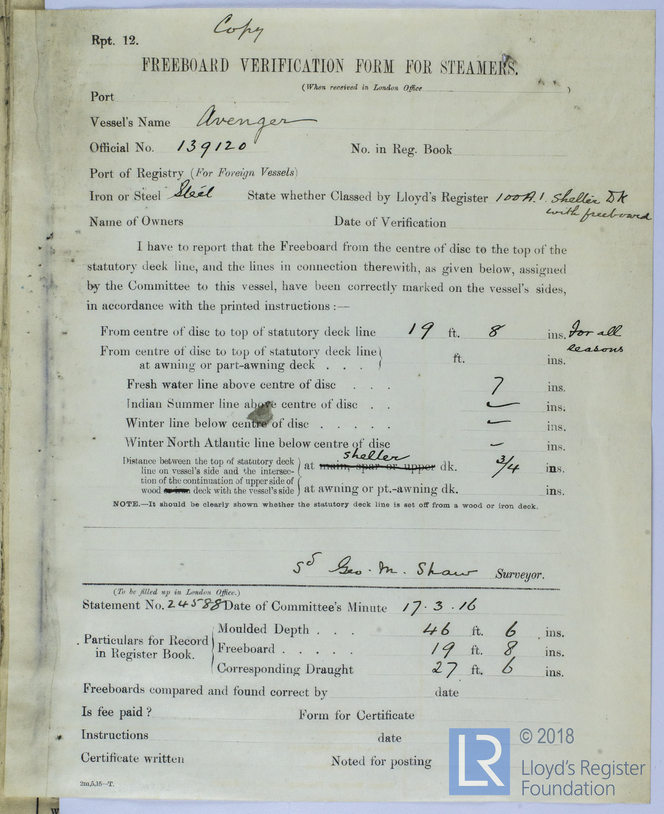 Copy
Rpt. 12.
FREEBOARD VERIFICATION FORM FOR STEAMERS.
(When received in London Office )
Port
Vessel's Name Avenger
Official No. 139120 No. in Reg. Book
Port of Registry (For Foreign Vessels)
Iron or Steel Steel State whether Classed by Lloyd's Register 100A.1. Shelter DK
with freeboard
Name of Owners Date of Verification
I have to report that the Freeboard from the centre of disc to the top of the
statutory deck line, and the lines in connection therewith, as given below, assigned
by the Committee to this vessel, have been correctly marked on the vessel's sides,
in accordance with the printed instructions :—
From centre of disc to top of statutory deck line 19 ft. 8 ins. For all
seasons
From centre of disc to top of statutory deck line
at awning or part-awning deck . . . ft. ins.
Fresh water line above centre of disc . . . 7 ins.
Indian Summer line above centre of disc . . ins.
Winter line below centre of disc . . . . . ins.
Winter North Atlantic line below centre of disc ins.
shelter
Distance between the top of statutory deck
line on vessel's side and the intersec- at main, spar or upper dk. 3/4 ins.
tion of the continuation of upper side of
wood or iron deck with the vessel's side at awning or pt.-awning dk. ins.
NOTE.—It should be clearly shown whether the statutory deck line is set off from a wood or iron deck.
sd Geo. M. Shaw Surveyor.
(To be filled up in London Office.)
Statement No. 24588 Date of Committee's Minute 17.3.16
Particulars for Record
in Register Book.
Moulded Depth . . . 46 ft. 6 ins.
Freeboard . . . . . 19 ft. 8 ins.
Corresponding Draught 27 ft. 6 ins.
Freeboards compared and found correct by date
Is fee paid ? Form for Certificate
Instructions date
Certificate written Noted for posting
2m,5,15—T.
LR © 2018
Lloyd's Register
Foundation